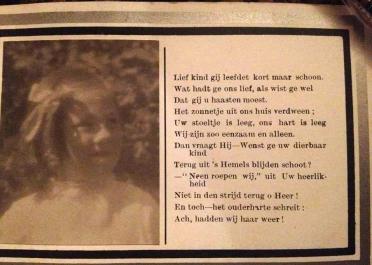 Lief kind gij leefdet kort maar schoon.
Wat hadt ge ons lief, als wist ge wel
Dat gij u haasten moest.
Het zonnetje uit ons huis verdween ;
Uw stoeltje is leeg, ons hart is leeg
Wij zijn zoo eenzaam en alleen.
Dan vraagt Hij—Wenst ge uw dierbaar
kind
Terug uit 's Hemels blijden schoot?
—" Neen roepen wij," uit Uw heerlik-
heid
Niet in den strijd terug o Heer !
En toch—het ouderharte schreit :
Ach, hadden wij haar weer !